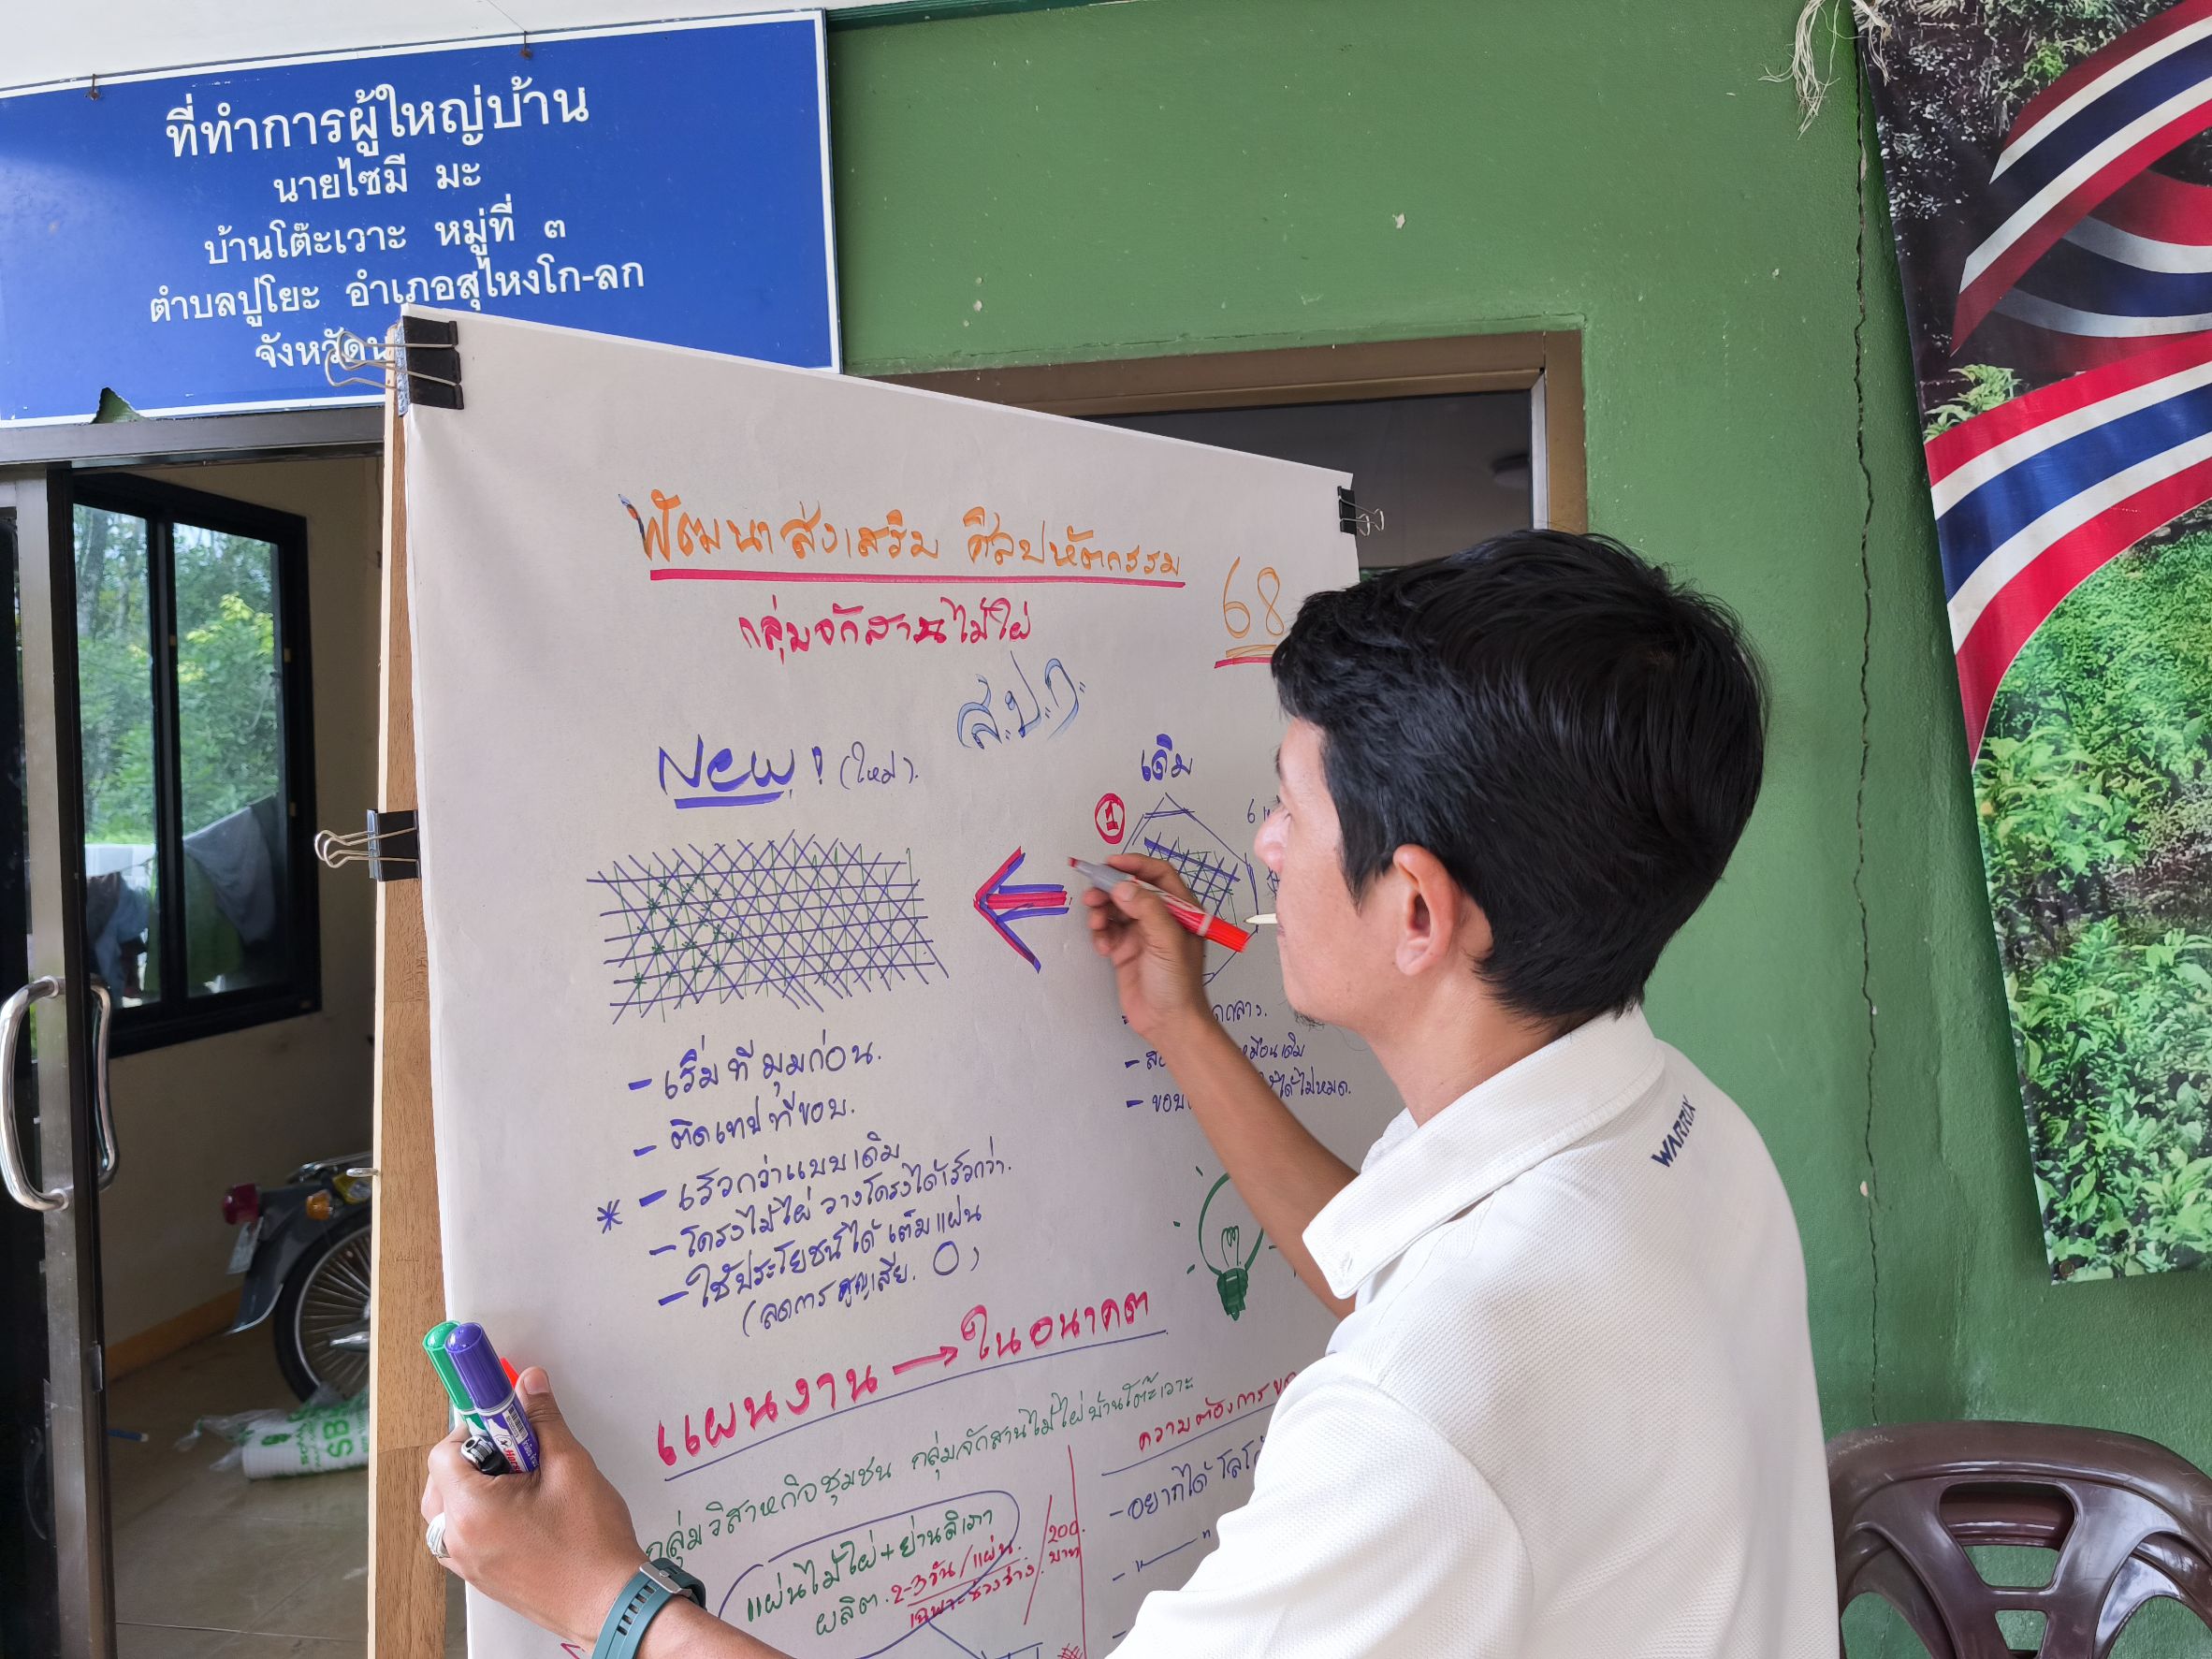 ที่ทำการผู้ใหญ่บ้าน
นายไซมี มะ
บ้านโต๊ะเวาะ หมู่ที่ ๓
ตำบลปูโยะ อำเภอสุไหงโก-ลก
จังหวัดน
พัฒนาส่งเสริม ศิลปหัตถกรรม
68
กลุ่มจักสานไม้ไผ่
ส.ป.ก.
New! (ใหม่).
เดิม
1
6
- เริ่มที่มุมก่อน.
- ติดเทปที่ขอบ.
* - เร็วกว่าแบบเดิม
- โครงไม้ไผ่ วางโครงได้เร็วกว่า.
- ใช้ประโยชน์ได้ เต็มแผ่น
(ลดการสูญเสีย. O)
เหมือนเดิม
- ขอบ ได้ไม่หมด.
แผนงาน → ในอนาคต
กลุ่มวิสาหกิจชุมชน กลุ่มจักสานไม้ไผ่บ้านโต๊ะเวาะ
แผ่นไม้ไผ่+ย่านลิเภา
ผลิต. 2-3วัน/แผ่น.
เฉพาะช่วงว่าง
/200 บาท
ความต้องการ
- อยากได้ โลโก้
WARRIX